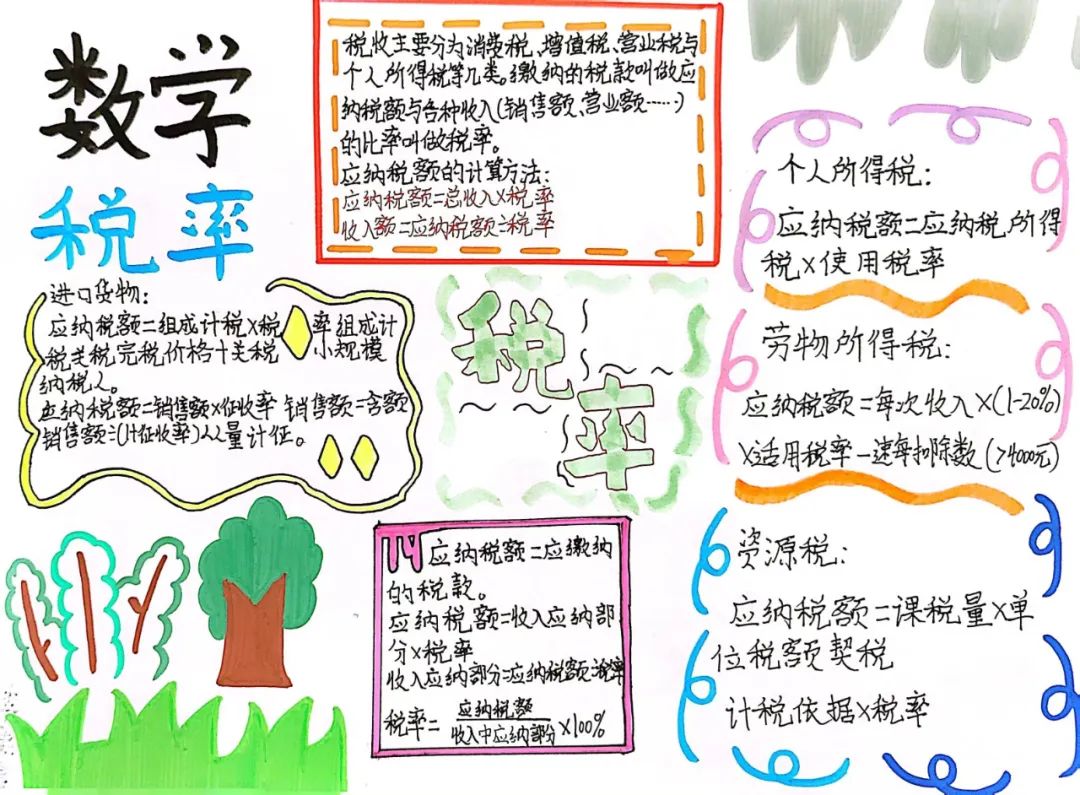 数学
税率
税收主要分为消费税、增值税、营业税与
个人所得税等几类。缴纳的税款叫做应
纳税额与各种收入(销售额、营业额……)
的比率叫做税率。
应纳税额的计算方法:
应纳税额=总收入×税率
收入额=应纳税额÷税率
进口货物:
应纳税额=组成计税×税率组成计
税关税完税价格+关税 小规模
纳税人。
应纳税额=销售额×征收率 销售额=含额
销售额÷(计征收率)从量计征。
税率
应纳税额=应缴纳
的税款。
应纳税额=收入应纳部
分×税率
收入应纳部分=应纳税额÷税率
税率=应纳税额/收入中应纳部分×100%
个人所得税:
应纳税额=应纳税所得
税×使用税率
劳物所得税:
应纳税额=每次收入×(1-20%)
×适用税率-速每扣除数(>4000元)
资源税:
应纳税额=课税量×单
位税额契税
计税依据×税率